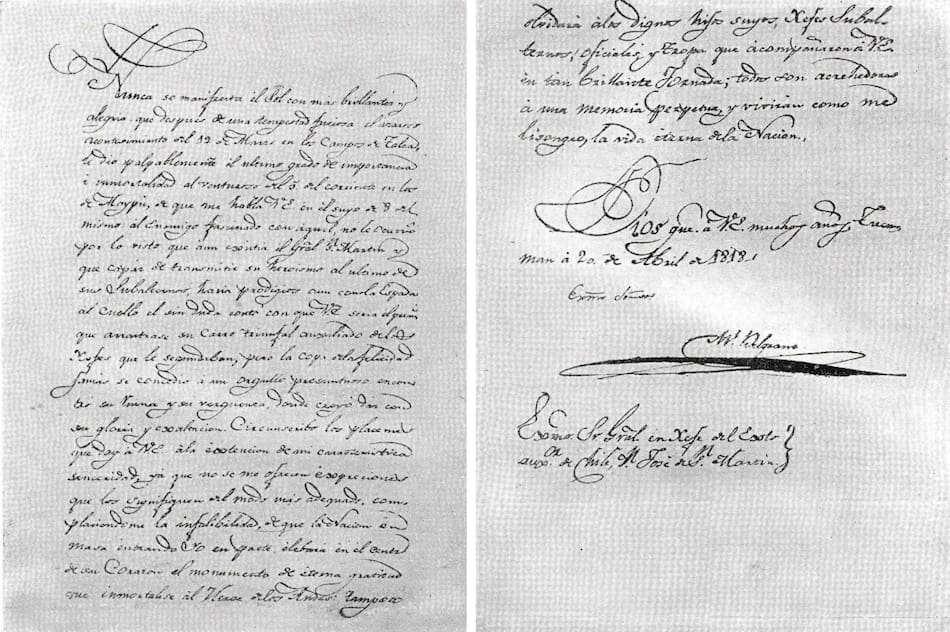 Nunca se manifiesta el Sol con más brillantes y
alegria, que despues de una tempestad furiosa. el
contecimiento del 19 de Marzo en los Campos de Talca,
le dio palpablemente el ultimo grado de importancia
é inmortalidad al venturoso del 5. del corriente en los
de Maypú, de que me habla V.E. en el suyo de 8 del
mismo: al Enemigo fascinado con aquel, no le ocurrio
por lo visto que aun existia el Gral Sn. Martin y
que capaz de transmitir su heroismo al ultimo de
sus Subalternos, haria prodigios aun con la Espada
al Cuello: el sin duda contó con que V.E. seria el
que arrastrase su Carro triunfal auxiliado de los
Xefes que le segundaban, pero la
jamás se concedio à un orgullo presuntuoso: encon
tró su tumba y su verguenza, donde creyó dar con
su gloria y exaltacion. Circunscribo los placeme
que doy à V.E. à la extencion de mi caracteristica
sinceridad, ya que no se me ofrecen expreciones
que los signifiquen del modo más adequado, com
placiendome la infalibilidad, de que la Nacion en
masa entrando Yo en parte, elebará en el centro
de su Corazón el monumento de eterna gratitud
que inmortalise al Heroe de los Andes: tampoco
olvidará à los dignos hijos suyos, Xefes Subal-
ternos, oficiales, y tropa que acompañaron à V.E.
en tan brillante Jornada; todos son acrehedores
à una memoria perpetua, y viviran como me
lisongeo, la vida eterna de la Nacion.
Dios gue. à V.E. muchos años, Tucu
man à 20. de Abril de 1818.
Exmo Señor
Ml. Belgrano
Exmo. Sr. Gral en Xefe del Exto
auxor. de Chile, Dn. José de Sn. Martin.